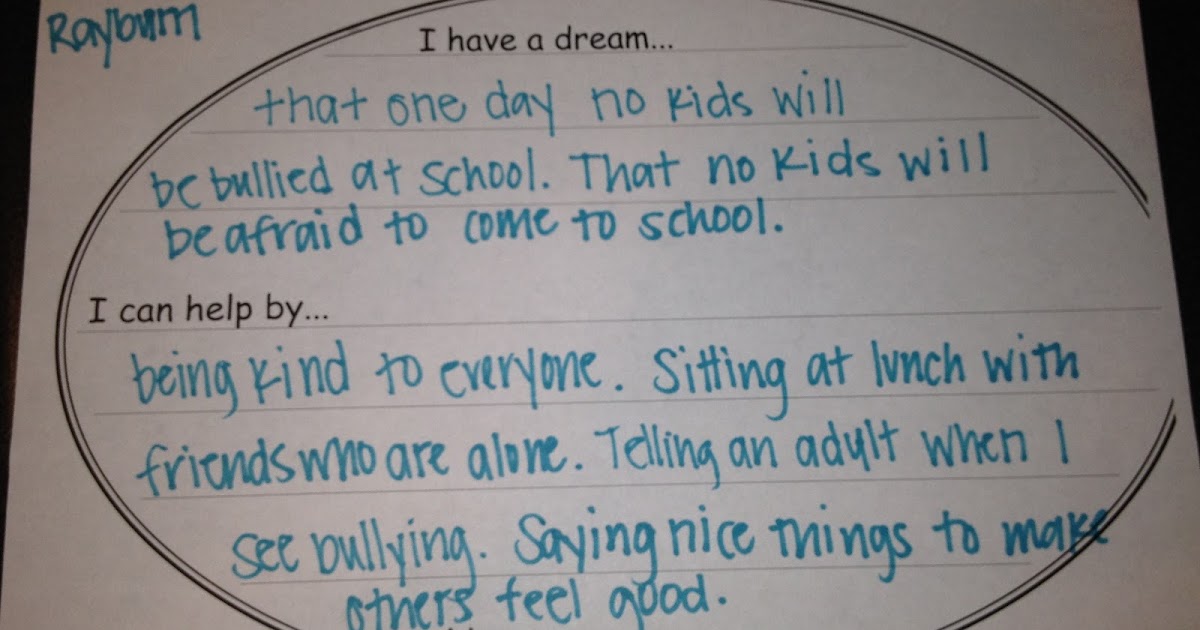 Rayburn
I have a dream...
that one day no kids will
be bullied at school. That no kids will
be afraid to come to school.
I can help by...
being kind to everyone. Sitting at lunch with
friends who are alone. Telling an adult when I
see bullying. Saying nice things to make
others feel good.